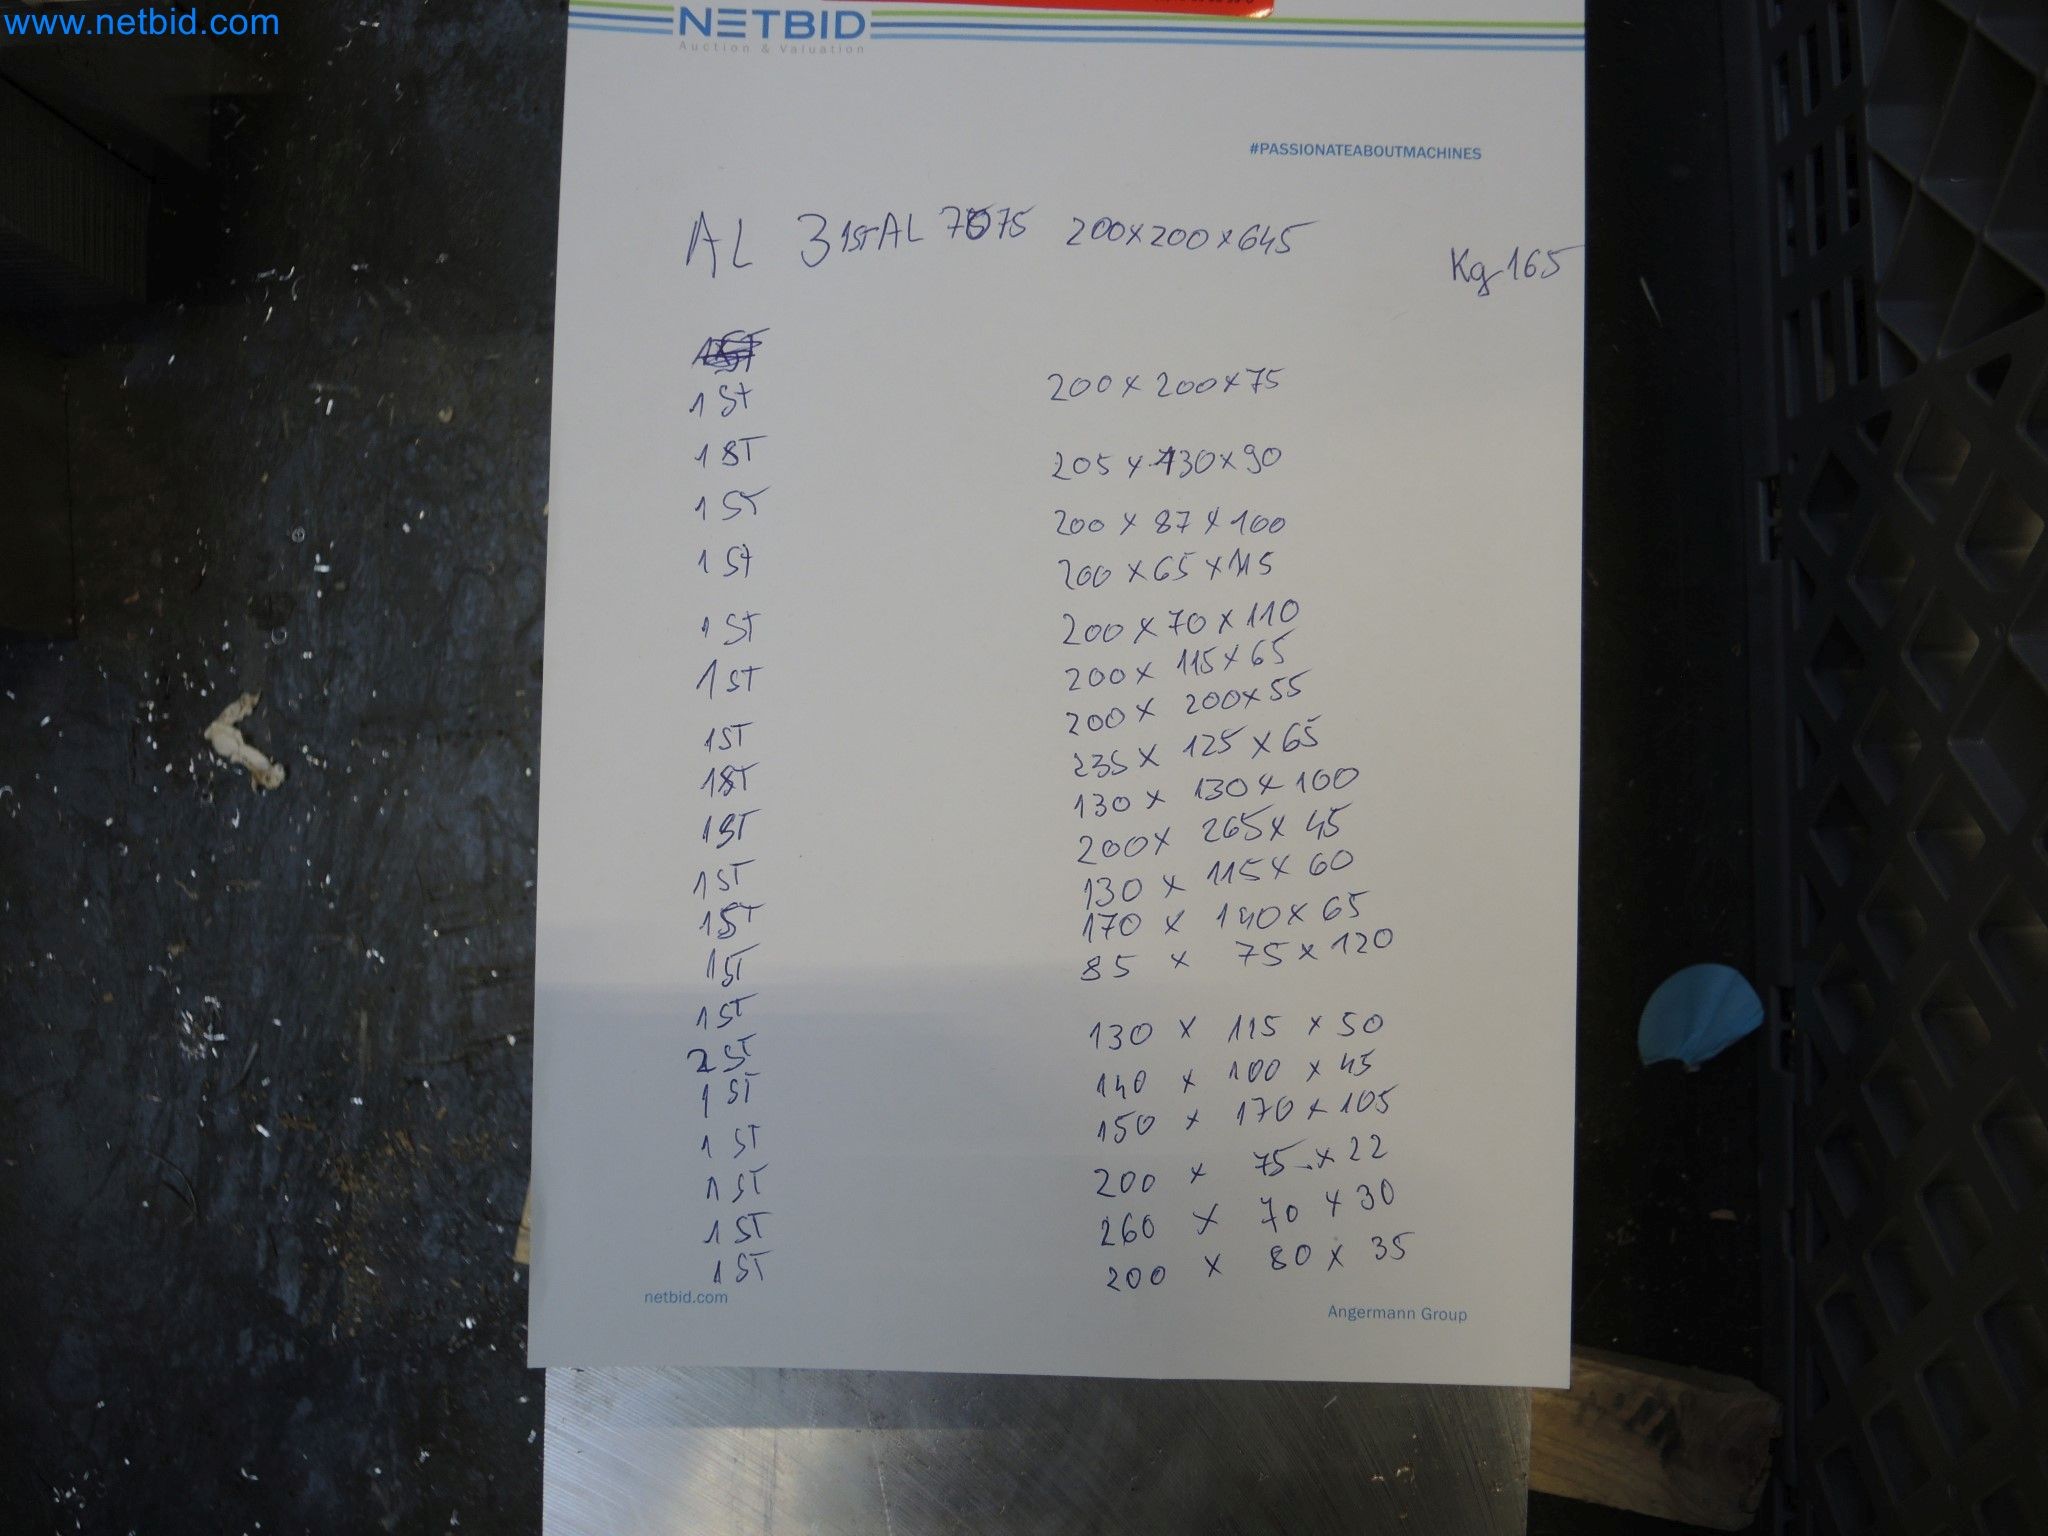 www.netbid.com
NETBID
Auction & Valuation
#PASSIONATEABOUTMACHINES
AL 3 1ST AL 7075 200x200x645
Kg 165
1 St 200 x 200 x 75
1 ST 205 x 130 x 90
1 ST 200 x 87 x 100
1 St 200 x 65 x 115
1 ST 200 x 70 x 110
1 ST 200 x 115 x 65
1 ST 200 x 200 x 55
1 ST 235 x 125 x 65
1 ST 130 x 130 x 100
1 ST 200 x 265 x 45
1 ST 130 x 115 x 60
1 ST 170 x 140 x 65
1 ST 85 x 75 x 120
2 ST 130 x 115 x 50
1 ST 140 x 100 x 45
1 ST 150 x 170 x 105
1 ST 200 x 75 x 22
1 ST 260 x 70 x 30
1 ST 200 x 80 x 35
netbid.com
Angermann Group